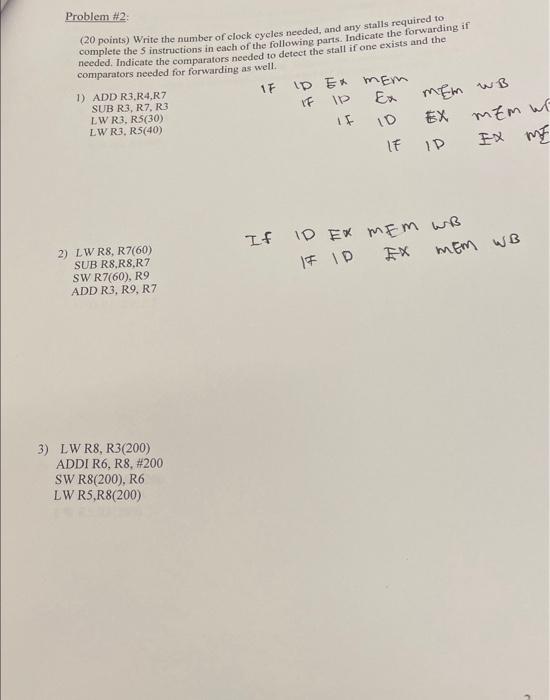 Problem #2:
(20 points) Write the number of clock cycles needed, and any stalls required to
complete the 5 instructions in each of the following parts. Indicate the forwarding if
needed. Indicate the comparators needed to detect the stall if one exists and the
comparators needed for forwarding as well.
1) ADD R3,R4,R7
SUB R3, R7, R3
LW R3, R5(30)
LW R3, R5(40)
IF ID EX MEM
IF ID EX MEM WB
IF ID EX MEM
IF ID EX
2) LW R8, R7(60)
SUB R8,R8,R7
SW R7(60), R9
ADD R3, R9, R7
If ID EX MEM WB
IF ID EX MEM WB
3) LW R8, R3(200)
ADDI R6, R8, #200
SW R8(200), R6
LW R5,R8(200)